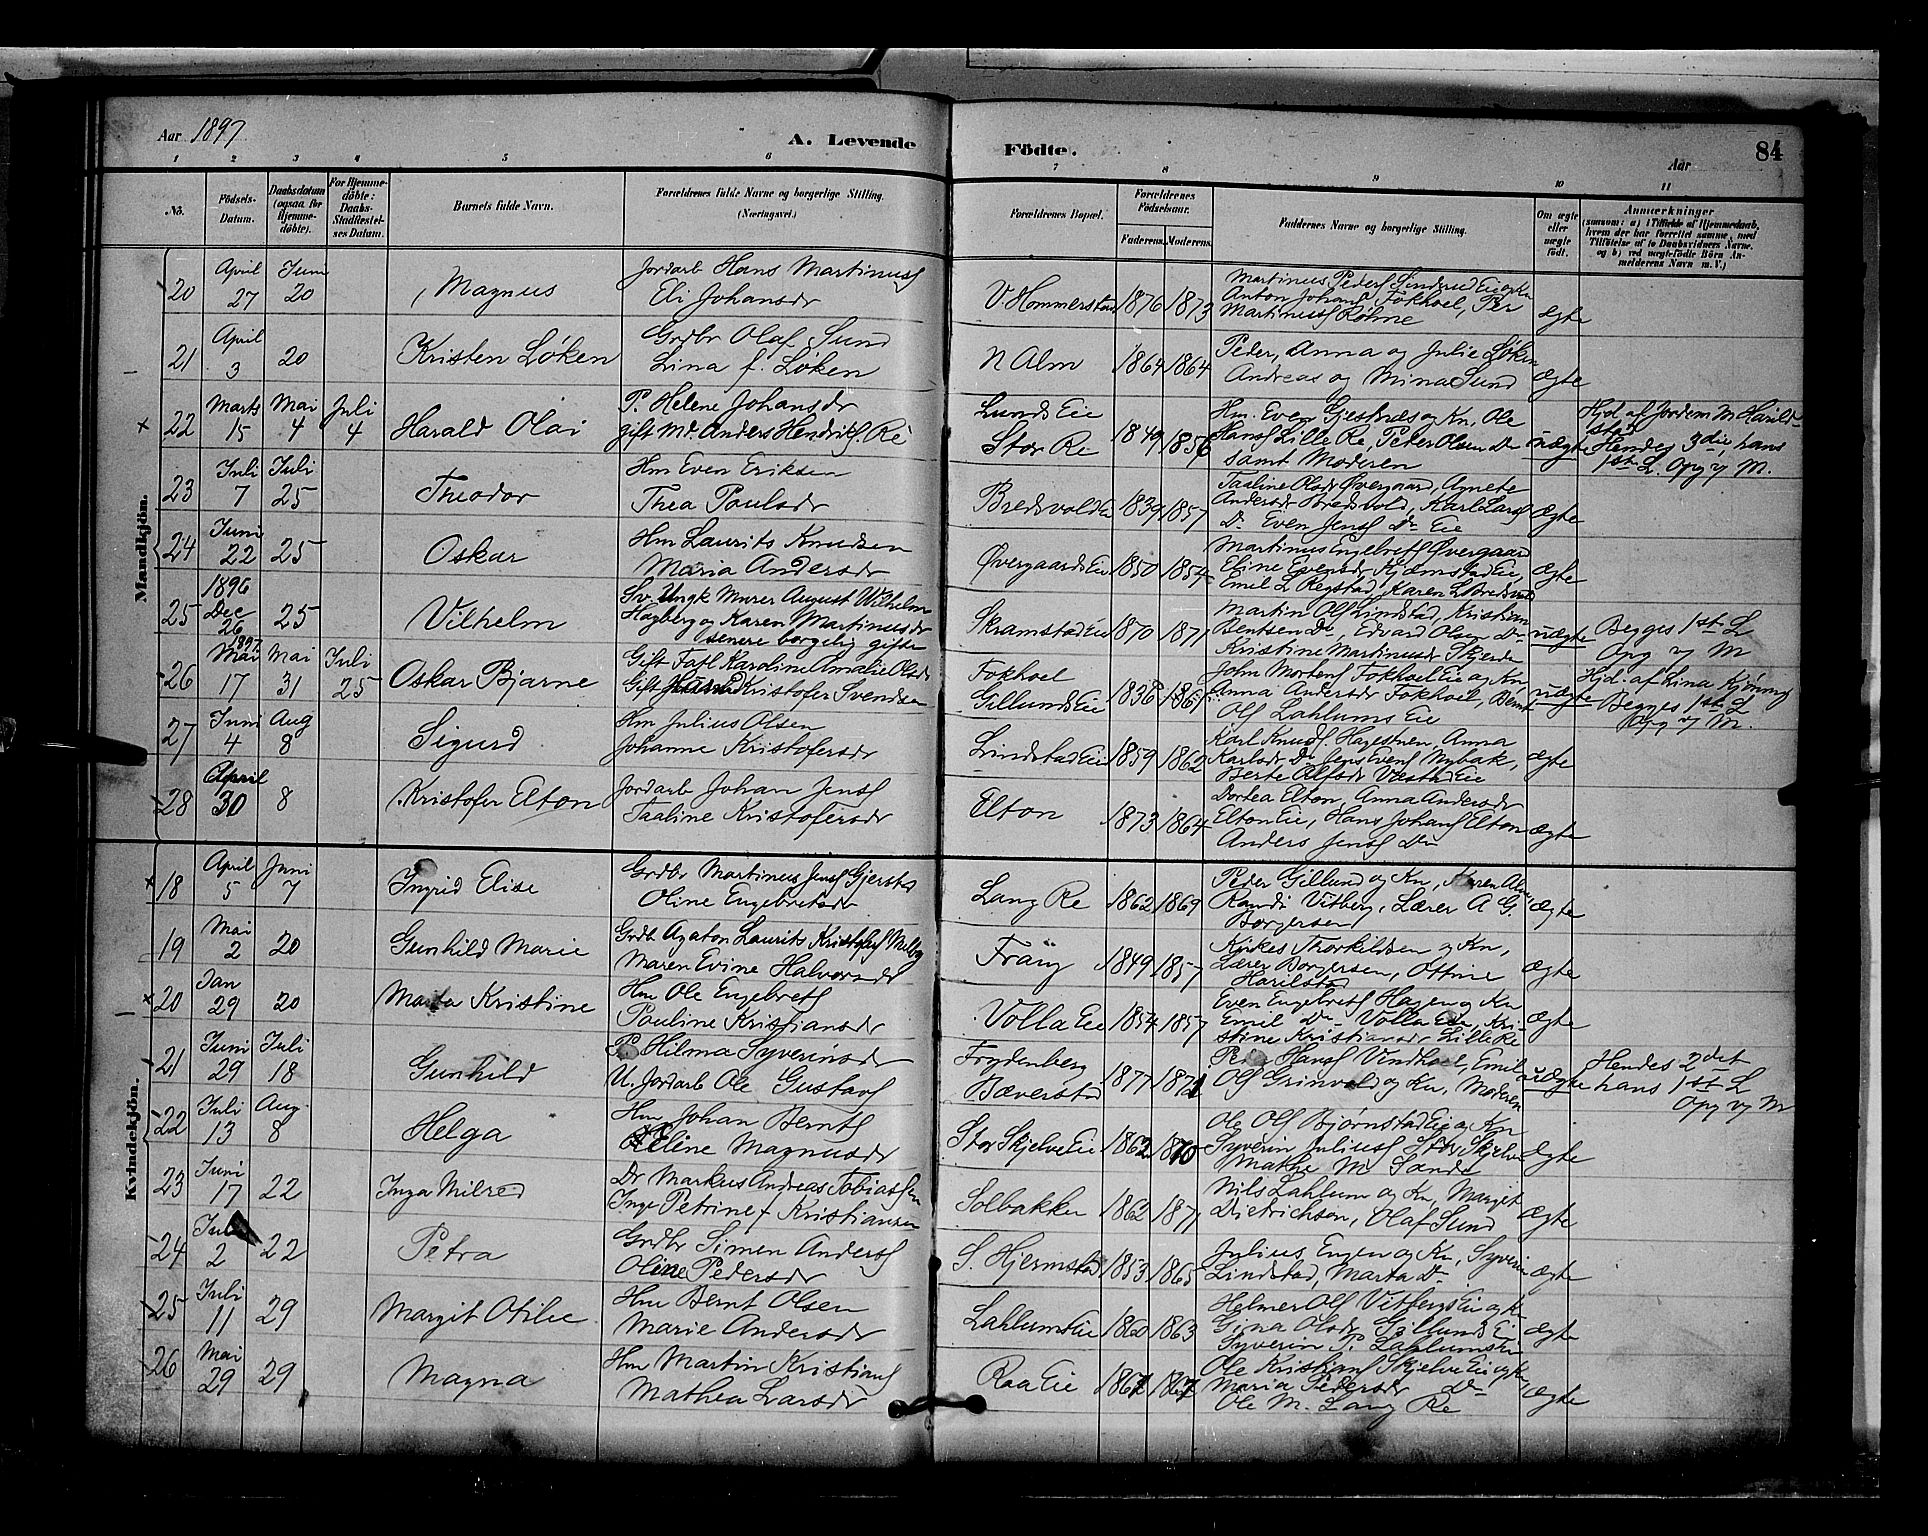 Aar 1897
A. Levende
Födte.
Aar
84
1 2 3 4 5 6 7 8 9 10 11
No.
Födsels-
Datum.
Daabsdatum
(ogsaa for
Hjemme-
döbte).
For Hjemme-
döbte:
Daabs-
Stadfæstel-
ses Datum.
Barnets fulde Navn.
Forældrenes fulde Navne og borgerlige Stilling.
(Næringsvei.)
Forældrenes Bopæl.
Forældrenes
Födselsaar.
Faderens. Moderens.
Faddernes Navne og borgerlige Stilling.
Om ægte
eller
uægte
födt.
Anmærkninger
(saasom: a) i Tilfælde af Hjemmedaab,
hvem der har forrettet samme, med
Tilföielse af to Daabsvidners Navne,
og b) ved uægtefödte Börn An-
melderens Navn m. V.)
Mandkjön.
20
April
27
Juni
20
Magnus
Jordarb Hans Martinuss
Eli Johansdr
V Hommerstad
1876 1873
Martinus Peders Sinderud Eie og kn
Anton Johans Fokhoel, Per
Martinuss Røhne
ægte
21
April
3
20
Kristen Løken
Grdbr Olaf Sund
Lina f. Løken
N Alm
1864 1864
Peder, Anna og Julie Løken
Andreas og Mina Sund
ægte
22
Marts
15
Mai
4
Juli
4
Harald Olai
P. Helene Johansdr
gift Md. Anders Hendriks Re
Lunds Eie
Stor Re
1849 1856
Hm. Even Gjestnæs og Kn, Ole
Hans Lille Re Peder Olsen Do
samt Moderen
uægte
Hjd. af Jordem M Harild-
stad
Hendes 3die, hans
1ste L. Opg v M.
23
Juli
7
Juli
25
Theodor
Hm Even Eriksen
Thea Paulsdr
Bredsvold Ei
1839 1857
Taaline Olsdr Øvergaard, Agnete
Andersdr Bredsvold, Karl Lars
Do Even Jens Do Eie
ægte
24
Juni
22
25
Oskar
Hm Laurits Knudsen
Maria Andersdr
Øvergaards Eie
1850 1854
Martinus Engebrets Øvergaard
Eline Evensdr Hjemstad Eie,
Emil L Regstad, Karen L Bredsvold
ægte
25
1896
Dec
26
25
Vilhelm
Sv. Ungk Murer August Wilhelm
Hagberg og Karen Martinusdr
senere borgelig gifte
Skramstad Eie
1870 1871
Martin Ols Lindstad, Kristian
Bentsen Do, Edvard Olsen Do
Kristine Martinusdr Skjerde
uægte
Begges 1ste L
Opg v M
26
1897
Mai
17
Mai
31
Juli
25
Oskar Bjarne
Gift Karoline Amalie Olsdr
Gift Kristofer Svendsen
Fokhoel
Gillunds Eie
1836 1861
John Mortens Fokhoel Eie og Kn
Anna Andersdr Fokhoel, Bernt
Ols Lahlums Eie
uægte
Hjd. af Lina Kjønning
Begges 1ste L
Opg v M.
27
Juni
4
Aug
8
Sigurd
Hm Julius Olsen
Johanne Kristofersdr
Lindstad Eie
1859 1862
Karl Knuds. Hagestuen, Anna
Karlsdr Do Jens Evens Nybak,
Berte Olsdr Vestad Eie
ægte
28
April
30
8
Kristofer Elton
Jordarb Johan Jens
Taaline Kristofersdr
Elton
1873 1864
Dortea Elton, Anna Andersdr
Elton Eie, Hans Johans Elton
Anders Jens Do
ægte
Kvindekjön.
18
April
5
Juni
7
Ingrid Elise
Grdbr Martinus Jens Gjersta
Oline Engebretsdr
Lang Re
1862 1869
Peder Gillund og Kn, Karen Alm
Randi Vitberg, Lærer A G.
Borgersen
ægte
19
Mai
2
20
Gunhild Marie
Grdb Agaton Laurits Kristofs Melby
Maren Evine Halvorsdr
Frang
1849 1857
Kirkes Thorkildsen og Kn,
Lærer Borgersen, Ottine
Harilstad
ægte
20
Jan
29
20
Marta Kristine
Hm Ole Engebrets
Pauline Kristiansdr
Volla Eie
1854 1857
Even Engebrets Hagen og Kn
Emil Do Volla Eie, Kri-
stine Kristiansdr Lille Re
ægte
21
Juni
29
Juli
18
Gunhild
P. Hilma Syverinsdr
U. Jordarb Ole Gustavs
Frydenberg
Bæverstad
1877 1871
Per Hans Vindhoel, Emil
Ols Grinvold og Kn, Moderen
uægte
Hendes 2det
hans 1ste L
Opg v M
22
Juli
13
Aug.
8
Helga
Hm Johan Bernts
Eline Magnusdr
Stor Skjelve Eie
1862 1870
Ole Ols Bjørnstad Eie og Kn
Syverin Julius Stor Skjelve
Mathe M Sande
ægte
23
Juni
17
22
Inga Milred
Dr Markus Andreas Tobiassen
Inga Petrine f Kristiansen
Solbakken
1862 1871
Nils Lahlum og Kn, Margit
Dietrichson, Olaf Sund
ægte
24
Juli
2
22
Petra
Grdbr Simen Anders
Oline Pedersdr
S. Hjermstad
1853 1865
Julius Engen og Kn, Syverin
Lindstad, Marta Do
ægte
25
Juli
11
29
Margit Otilie
Hm Bernt Olsen
Marie Andersdr
Lahlums Eie
1860 1863
Helmer Ols Vitbergs Eie og k
Gina Olsdr Gillunds Ei
Syverin P. Lahlums Ei
ægte
26
Mai
29
29
Magna
Hm Martin Kristians
Mathea Larsdr
Raa Eie
1867 1867
Ole Kristians Skjelve Eie og kn
Maria Pedersdr Do
Ole M. Lang Re
ægte